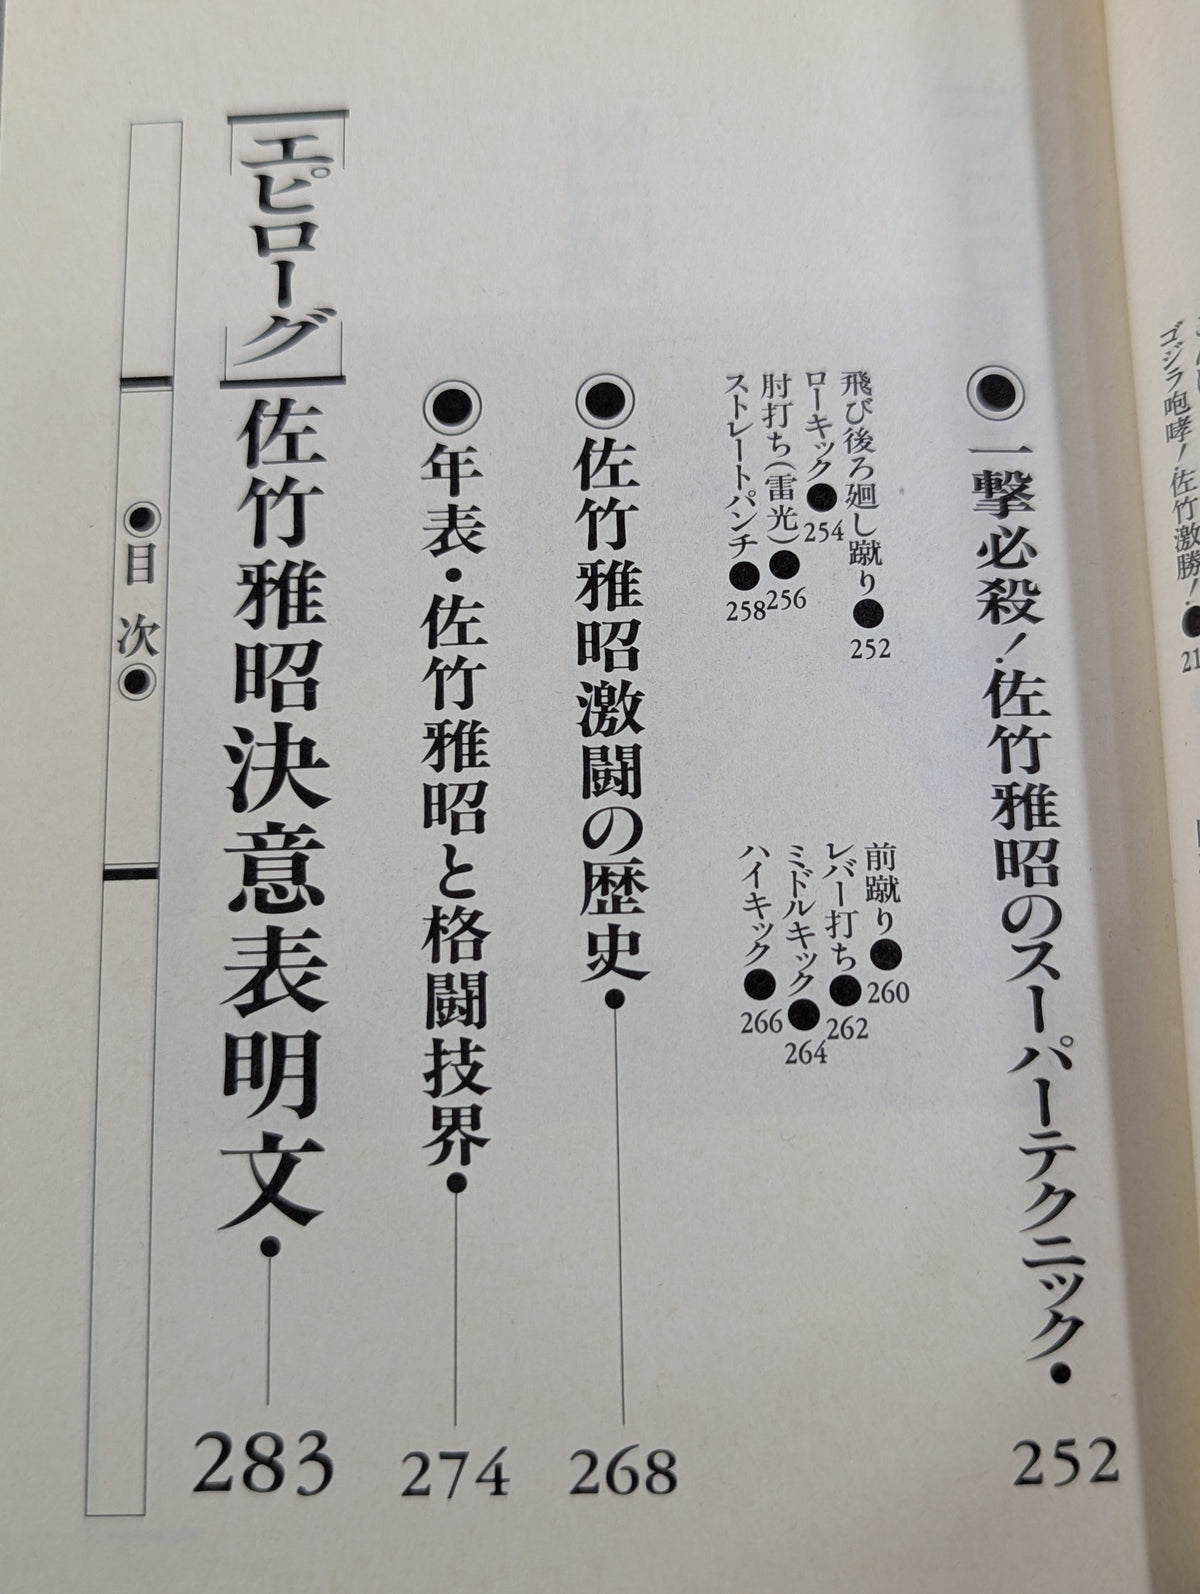 ゴジラ咆哮！佐竹激勝！●
◉一撃必殺！佐竹雅昭のスーパーテクニック・252
飛び後ろ廻し蹴り●252
ローキック●254
肘打ち（雷光）●256
ストレートパンチ●258
前蹴り●260
レバー打ち●262
ミドルキック●264
ハイキック●266
◉佐竹雅昭激闘の歴史・268
◉年表・佐竹雅昭と格闘技界・274
［エピローグ］佐竹雅昭決意表明文・283
◉目次◉